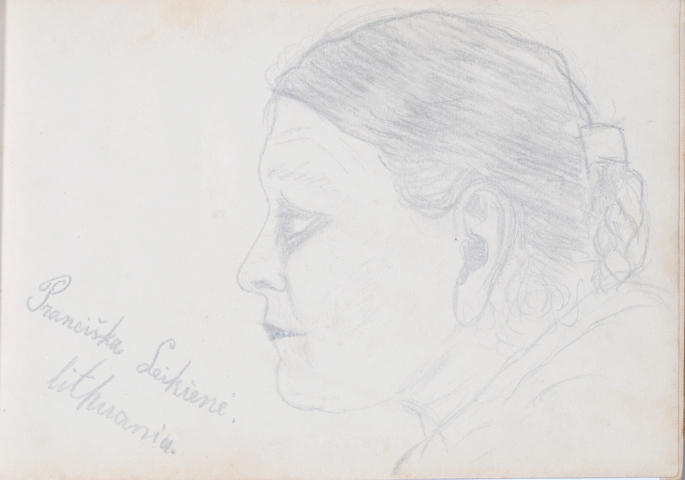 Pranciška Leikienė.
lithuania.